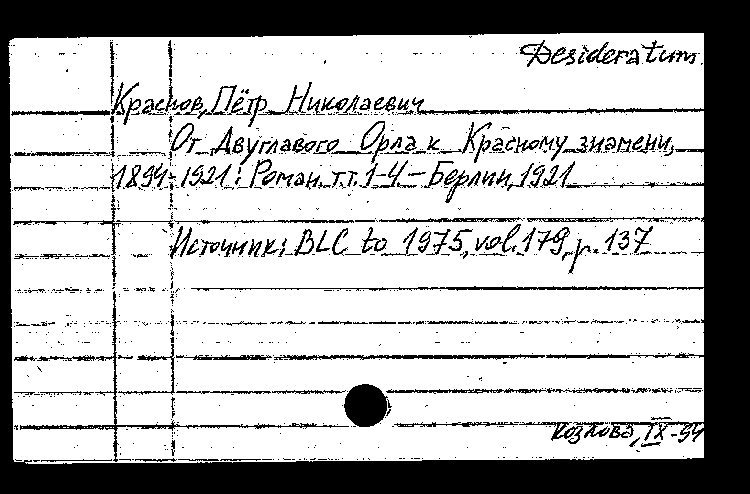 Desideratum
Краснов, Пётр Николаевич
От Двуглавого Орла к Красному знамени,
1894-1921: Роман. т.т. 1-4. – Берлин, 1921
Источник: BLC to 1975, vol. 179, p. 137
Козлова, IX-94